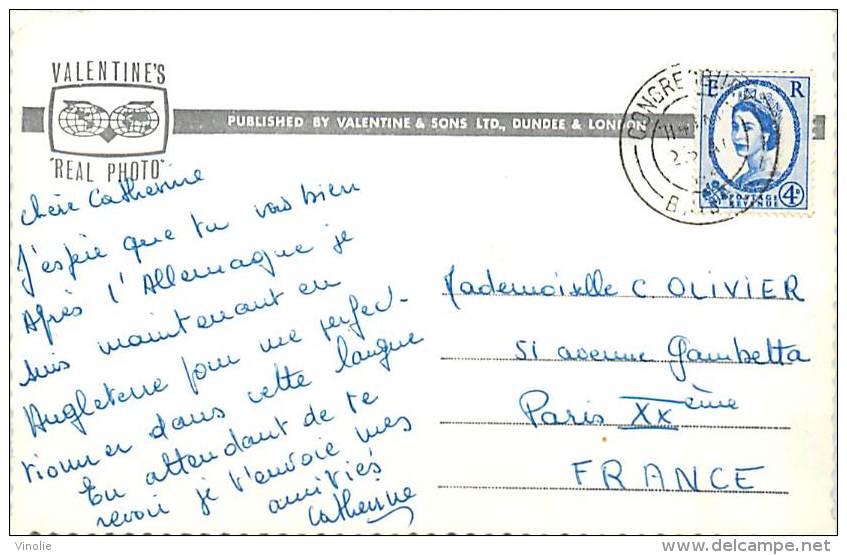 VALENTINE'S
"REAL PHOTO"
PUBLISHED BY VALENTINE & SONS LTD., DUNDEE & LONDON
E R
POSTAGE
REVENUE
4D
CONGRESBURY
chère Catherine
J'espère que tu vas bien
Après l'Allemagne je
suis maintenant en
Angleterre pour me perfec-
tionner dans cette langue
En attendant de te
revoir je t'envoie mes
amitiés
Catherine
Mademoiselle C. OLIVIER
51 avenue Gambetta
Paris XXème
FRANCE
Vinolie
delcampe.net